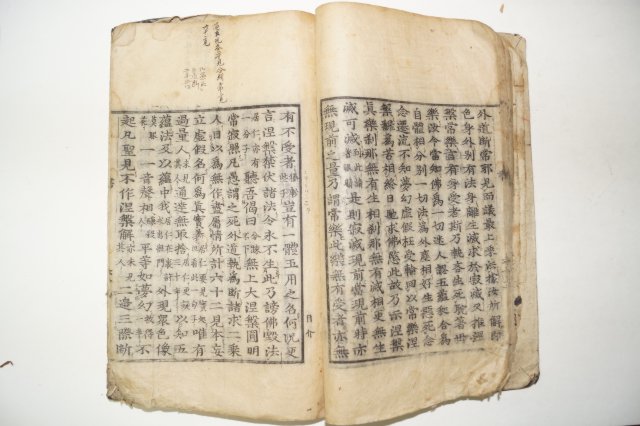 外道斷常邪見而議最上乘法據汝所解即
色身外別有法身離生滅求於寂滅又推涅
槃常樂言有身受者斯乃執吝生死耽著世
樂汝今當知佛爲一切迷人認五蘊和合爲
自體相分別一切法爲外塵相好生惡死念
念遷流不知夢幻虛假枉受輪回以常樂涅
槃翻爲苦相終日馳求佛愍此故乃示涅槃
眞樂剎那無有生相剎那無有滅相更無生
滅可滅是則寂滅現前當現前時亦
無現前之量乃謂常樂此樂無有受者亦無
有不受者豈有一體五用之名何況更
言涅槃禁伏諸法令永不生此乃謗佛毀法
聽吾偈曰無上大涅槃圓明
常寂照凡愚謂之死外道執爲斷諸求二乘
人目以爲無作盡屬情所計六十二見本妄
立虛假名何爲眞實義唯有
過量人通達無取捨以知五
蘊法及以蘊中我外現眾色像
一一音聲相平等如夢幻不
起凡聖見不作涅槃解二邊三際斷